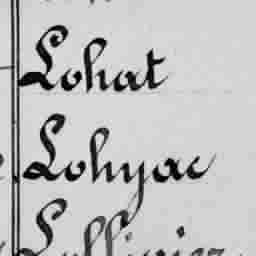 Lohat
Lohyac